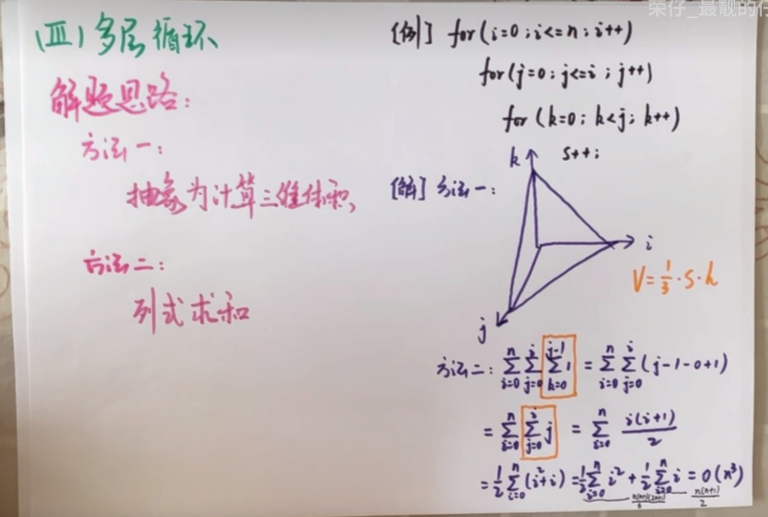 荣仔_最靓的仔
(三)多层循环
解题思路:
方法一:
抽象为计算三维体积
方法二:
列式求和
[例] for(i=0;i<=n;i++)
for(j=0;j<=i;j++)
for(k=0;k<j;k++)
s++;
[解]方法一:
k
i
j
V=1/3·S·h
方法二: ∑_{i=0}^{n} ∑_{j=0}^{i} ∑_{k=0}^{j-1} 1 = ∑_{i=0}^{n} ∑_{j=0}^{i} (j-1-0+1)
= ∑_{i=0}^{n} ∑_{j=0}^{i} j = ∑_{i=0}^{n} i(i+1)/2
= 1/2 ∑_{i=0}^{n} (i²+i) = 1/2 ∑_{i=0}^{n} i² + 1/2 ∑_{i=0}^{n} i = O(n³)
n(n+1)(2n+1)/6 n(n+1)/2